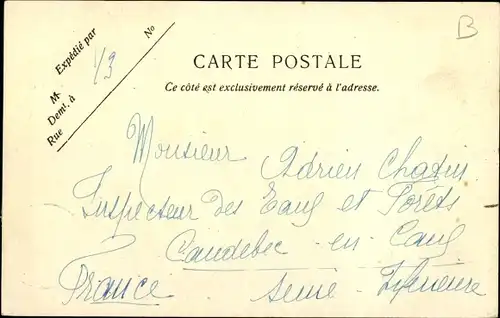 B
Expédié par
No
M
Demt. à
Rue
1/3
CARTE POSTALE
Ce côté est exclusivement réservé à l'adresse.
Monsieur Adrien
Inspecteur des Eaux et Forêts
Caudebec-en-Caux
France Seine-Inférieure